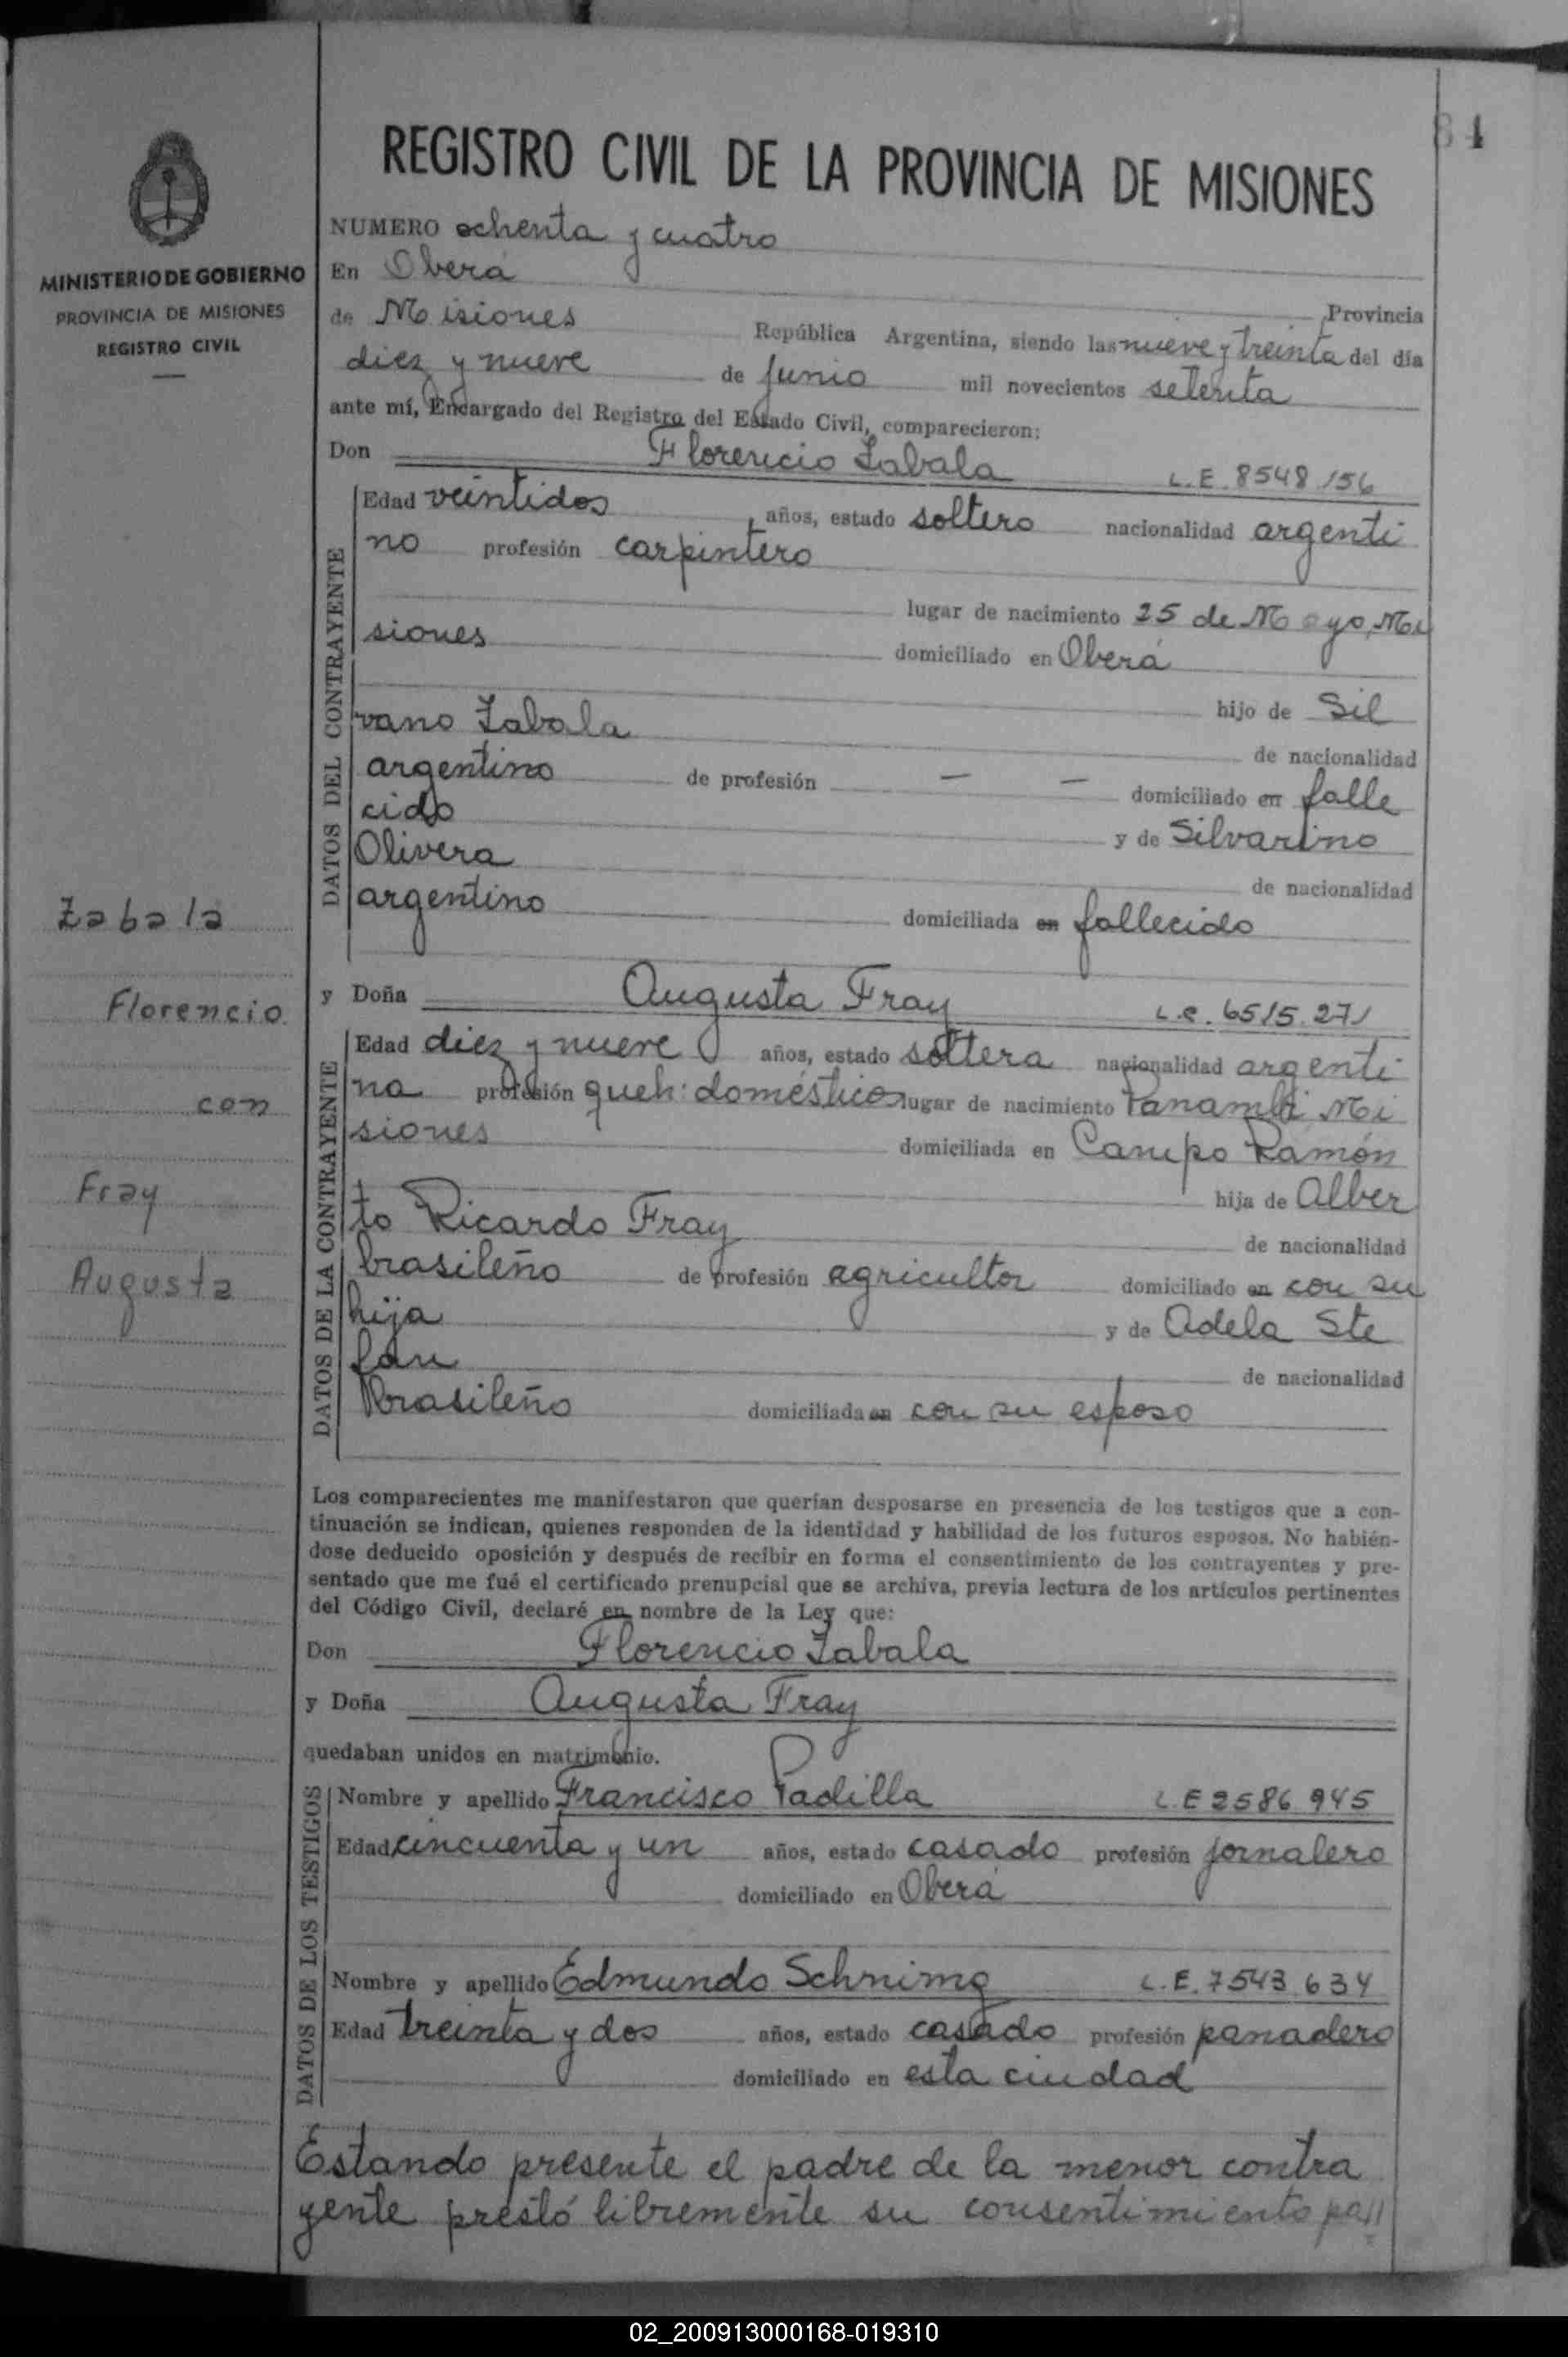 84
REGISTRO CIVIL DE LA PROVINCIA DE MISIONES
MINISTERIO DE GOBIERNO
PROVINCIA DE MISIONES
REGISTRO CIVIL
NUMERO ochenta y cuatro
En Oberá
Provincia
de Misiones República Argentina, siendo las nueve y treinta del día
diez y nueve de Junio mil novecientos setenta
ante mí, Encargado del Registro del Estado Civil, comparecieron:
Don Florencio Zabala L.E. 8548156
DATOS DEL CONTRAYENTE
Edad veintidos años, estado soltero nacionalidad argenti
no profesión carpintero
lugar de nacimiento 25 de Mayo, Mi
siones domiciliado en Oberá
hijo de Sil
vano Zabala
de nacionalidad
argentino de profesión — — domiciliado en falle
cido
y de Silvarino
Olivera
de nacionalidad
argentino domiciliada en fallecido
Zabala
Florencio
con
Fray
Augusta
y Doña Augusta Fray L.C. 6515.271
DATOS DE LA CONTRAYENTE
Edad diez y nueve años, estado soltera nacionalidad argenti
na profesión queh: domésticos lugar de nacimiento Panambi Mi
siones domiciliada en Campo Ramón
hija de Alber
to Ricardo Fray
de nacionalidad
brasileño de profesión agricultor domiciliado en con su
hija
y de Adela Ste
fan
de nacionalidad
brasileño domiciliada en con su esposo
Los comparecientes me manifestaron que querían desposarse en presencia de los testigos que a con-
tinuación se indican, quienes responden de la identidad y habilidad de los futuros esposos. No habién-
dose deducido oposición y después de recibir en forma el consentimiento de los contrayentes y pre-
sentado que me fué el certificado prenupcial que se archiva, previa lectura de los artículos pertinentes
del Código Civil, declaré en nombre de la Ley que:
Don Florencio Zabala
y Doña Augusta Fray
quedaban unidos en matrimonio.
DATOS DE LOS TESTIGOS
Nombre y apellido Francisco Padilla L.E 2586.945
Edad cincuenta y un años, estado casado profesión jornalero
domiciliado en Oberá
Nombre y apellido Edmundo Schnimg L.E. 7543.634
Edad treinta y dos años, estado casado profesión panadero
domiciliado en esta ciudad
Estando presente el padre de la menor contra
yente prestó libremente su consentimiento pa//
02_200913000168-019310